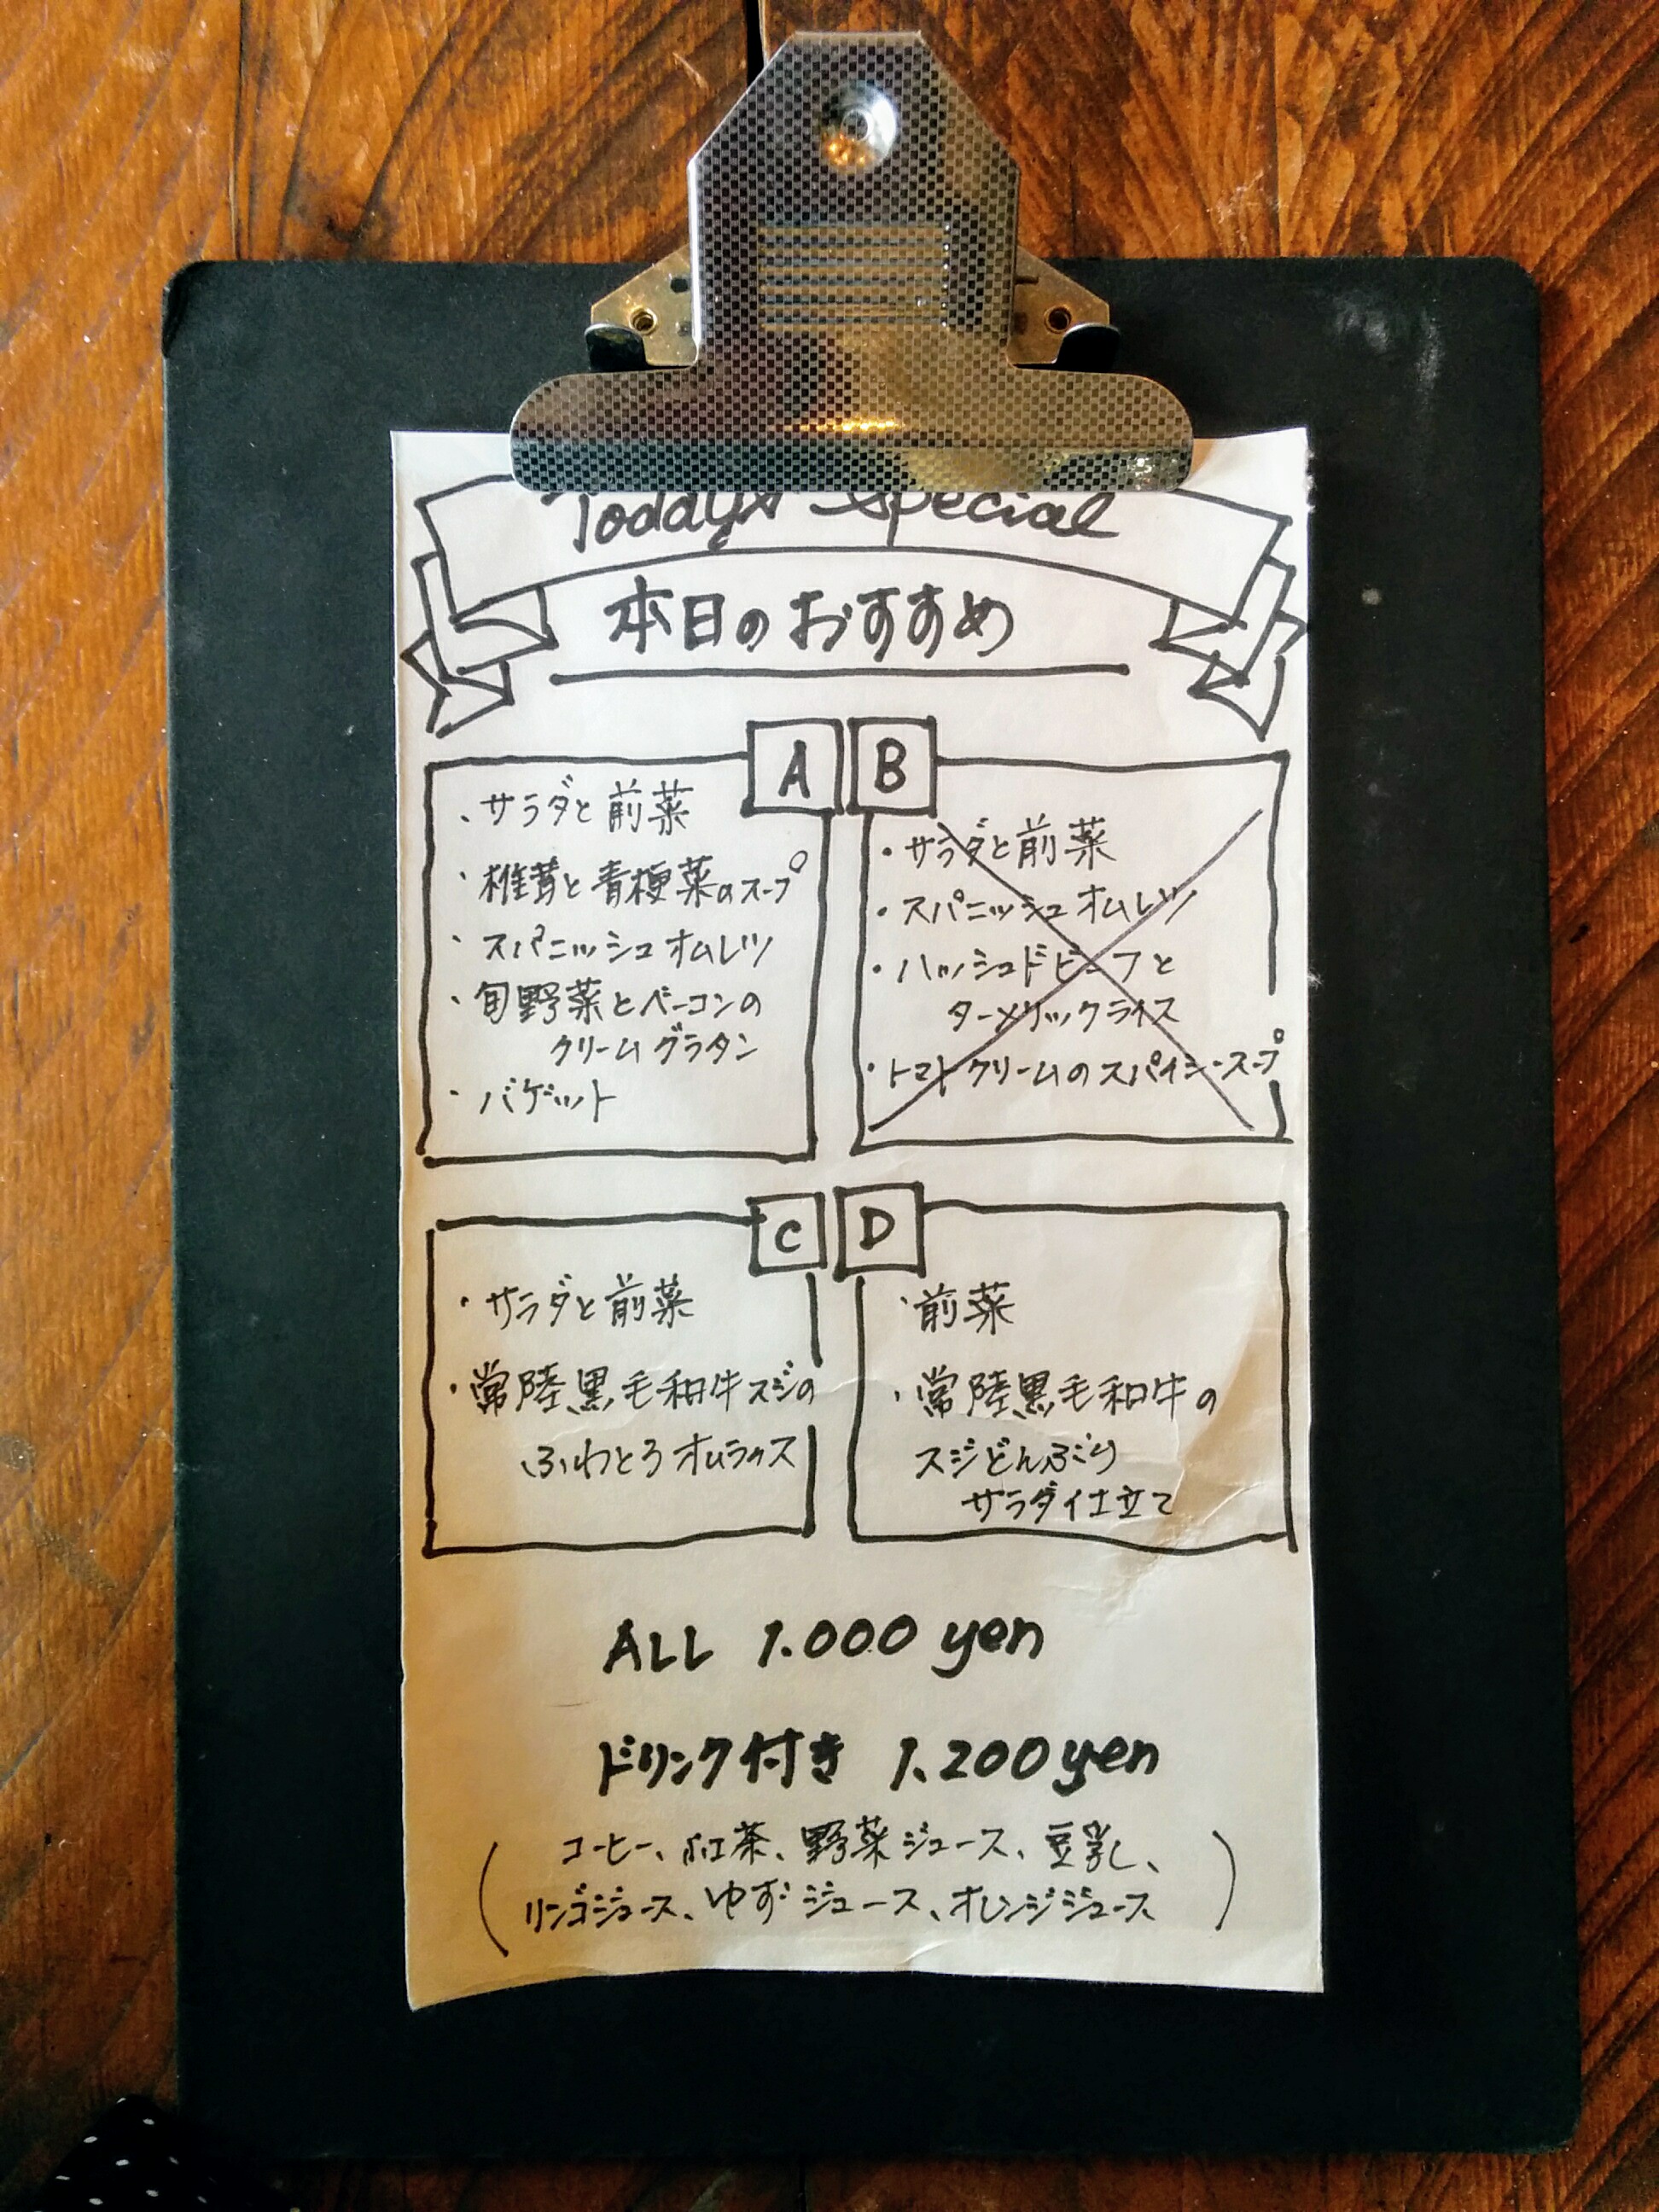 Today's Special
本日のおすすめ
A
・サラダと前菜
・椎茸と青梗菜のスープ
・スパニッシュオムレツ
・旬野菜とベーコンの
クリームグラタン
・バゲット
B
・サラダと前菜
・スパニッシュオムレツ
・ハッシュドビーフと
ターメリックライス
・トマトクリームのスパイシースープ
C
・サラダと前菜
・常陸黒毛和牛スジの
ふわとろオムライス
D
・前菜
・常陸黒毛和牛の
スジどんぶり
サラダ仕立て
ALL 1.000 yen
ドリンク付き 1.200yen
(コーヒー、紅茶、野菜ジュース、豆乳、
リンゴジュース、ゆずジュース、オレンジジュース)